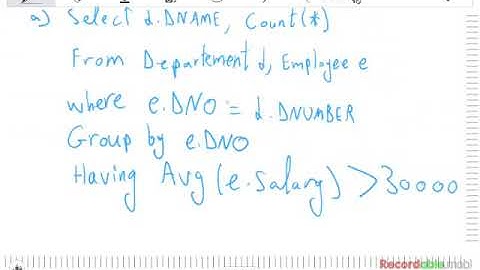 a) Select d.DNAME, Count(*)
From Departement d, Employee e
where e.DNO = d.DNUMBER
Group by e.DNO
Having Avg(e.Salary) > 30000
Recordable.mobi